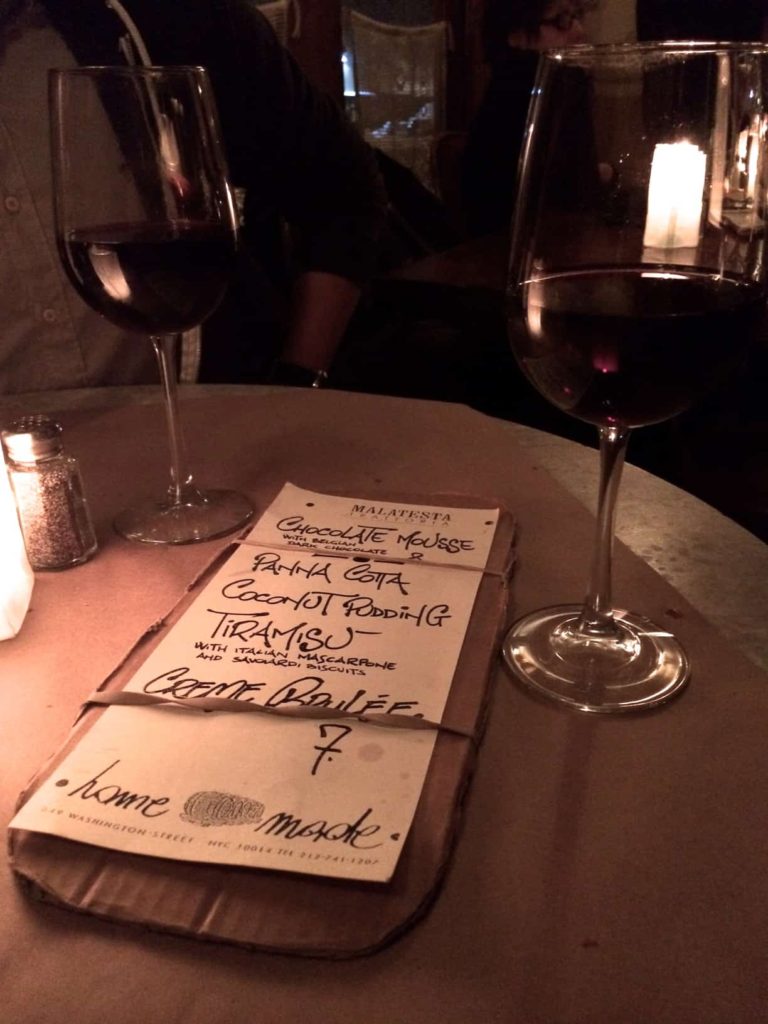 MALATESTA
TRATTORIA
CHOCOLATE MOUSSE
WITH BELGIAN
DARK CHOCOLATE 8
PANNA COTTA
COCONUT PUDDING
TIRAMISU
WITH ITALIAN MASCARPONE
AND SAVOIARDI BISCUITS
CREME BRULÉE
7.
• home made •
649 WASHINGTON STREET NYC 10014 TEL 212-741-1207